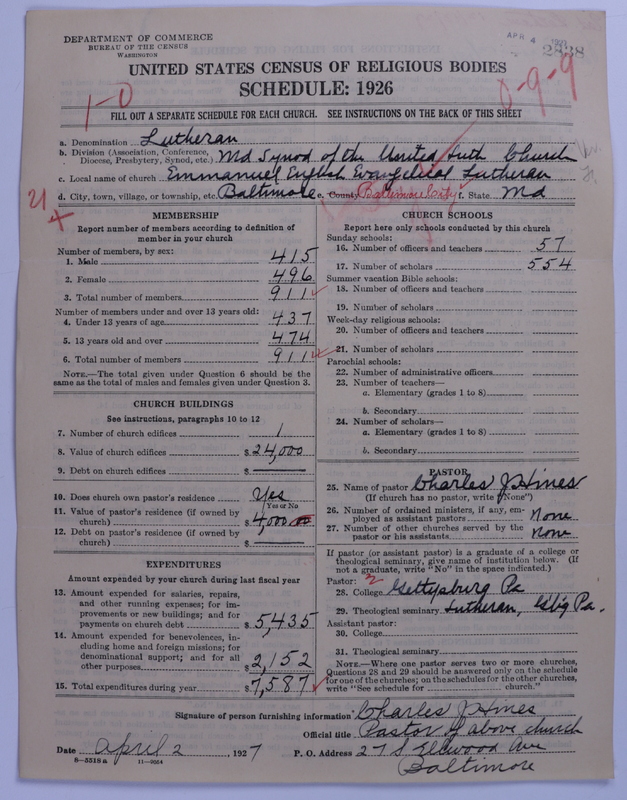 DEPARTMENT OF COMMERCE
BUREAU OF THE CENSUS
WASHINGTON
APR 4
2238
UNITED STATES CENSUS OF RELIGIOUS BODIES
SCHEDULE: 1926
1-0
0-9-9
FILL OUT A SEPARATE SCHEDULE FOR EACH CHURCH. SEE INSTRUCTIONS ON THE BACK OF THIS SHEET
a. Denomination Lutheran
b. Division (Association, Conference, Diocese, Presbytery, Synod, etc.) Md Synod of the United Luth Church
c. Local name of church Emmanuel English Evangelical Lutheran
d. City, town, village, or township, etc. Baltimore e. County Baltimore City f. State Md
21
MEMBERSHIP
Report number of members according to definition of
member in your church
Number of members, by sex:
1. Male 415
2. Female 496
3. Total number of members 911
Number of members under and over 13 years old:
4. Under 13 years of age 437
5. 13 years old and over 474
6. Total number of members 911
NOTE.—The total given under Question 6 should be the
same as the total of males and females given under Question 3.
CHURCH BUILDINGS
See instructions, paragraphs 10 to 12
7. Number of church edifices 1
8. Value of church edifices $24,000
9. Debt on church edifices $
10. Does church own pastor's residence Yes
Yes or No
11. Value of pastor's residence (if owned by
church) $4,000
12. Debt on pastor's residence (if owned by
church) $
EXPENDITURES
Amount expended by your church during last fiscal year
13. Amount expended for salaries, repairs,
and other running expenses; for im-
provements or new buildings; and for
payments on church debt $5,435
14. Amount expended for benevolences, in-
cluding home and foreign missions; for
denominational support; and for all
other purposes $2,152
15. Total expenditures during year $7,587
CHURCH SCHOOLS
Report here only schools conducted by this church
Sunday schools:
16. Number of officers and teachers 57
17. Number of scholars 554
Summer vacation Bible schools:
18. Number of officers and teachers
19. Number of scholars
Week-day religious schools:
20. Number of officers and teachers
21. Number of scholars
Parochial schools:
22. Number of administrative officers
23. Number of teachers—
a. Elementary (grades 1 to 8)
b. Secondary
24. Number of scholars—
a. Elementary (grades 1 to 8)
b. Secondary
PASTOR
25. Name of pastor Charles J Hines
(If church has no pastor, write "None")
26. Number of ordained ministers, if any, em-
ployed as assistant pastors None
27. Number of other churches served by the
pastor or his assistants None
If pastor (or assistant pastor) is a graduate of a college or
theological seminary, give name of institution below. (If
not a graduate, write "No" in the space indicated.)
Pastor: 2
28. College Gettysburg Pa
29. Theological seminary Lutheran, G'b'g Pa.
Assistant pastor:
30. College
31. Theological seminary
NOTE.—Where one pastor serves two or more churches,
Questions 28 and 29 should be answered only on the schedule
for one of the churches; on the schedules for the other churches,
write "See schedule for church."
Signature of person furnishing information Charles J Hines
Official title Pastor of above church
Date April 2, 1927 P. O. Address 27 S Ellwood Ave
Baltimore
8-5518a 11-9064